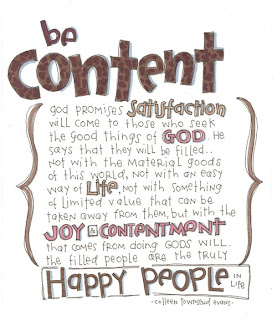 be
content
god promises satisfaction
will come to those who seek
the good things of GOD He
says that they will be filled..
not with the material goods
of this world, not with an easy
way of Life, not with something
of limited value that can be
taken away from them, but with the
JOY & CONTENTMENT
that comes from doing GODS WILL.
the filled people are the truly
Happy PEOPLE IN LIFE
-colleen townsend evans-